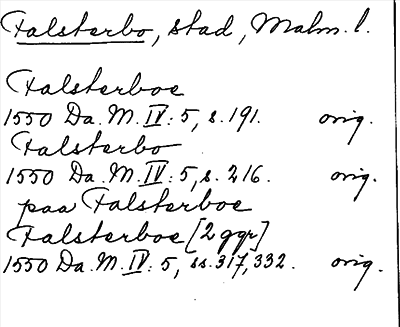 Falsterbo, stad, Malm. l.
Falsterboe
1550 Da. M. IV: 5, s. 191. orig.
Falsterbo
1550 Da. M. IV: 5, s. 216. orig.
paa Falsterboe
Falsterboe [2 ggr]
1550 Da. M. IV: 5, ss. 317, 332. orig.